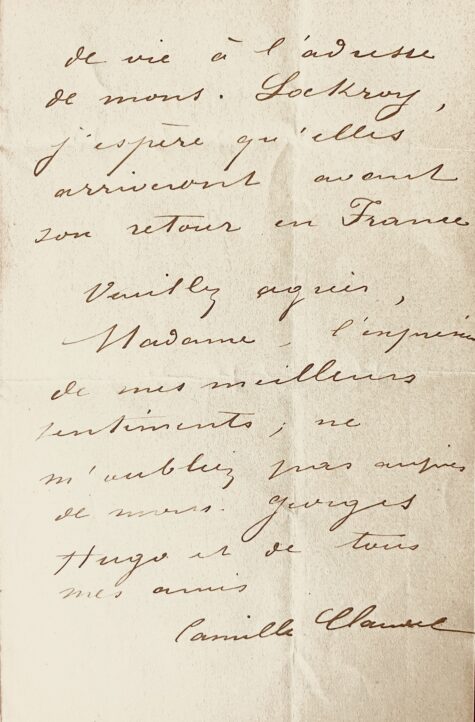 de vie à l'adresse
de mons. Lockroy,
j'espère qu'elles
arriveront avant
son retour en France
Veuillez agréer,
Madame, l'expression
de mes meilleurs
sentiments; ne
m'oubliez pas auprès
de mons. Georges
Hugo et de tous
mes amis
Camille Claudel